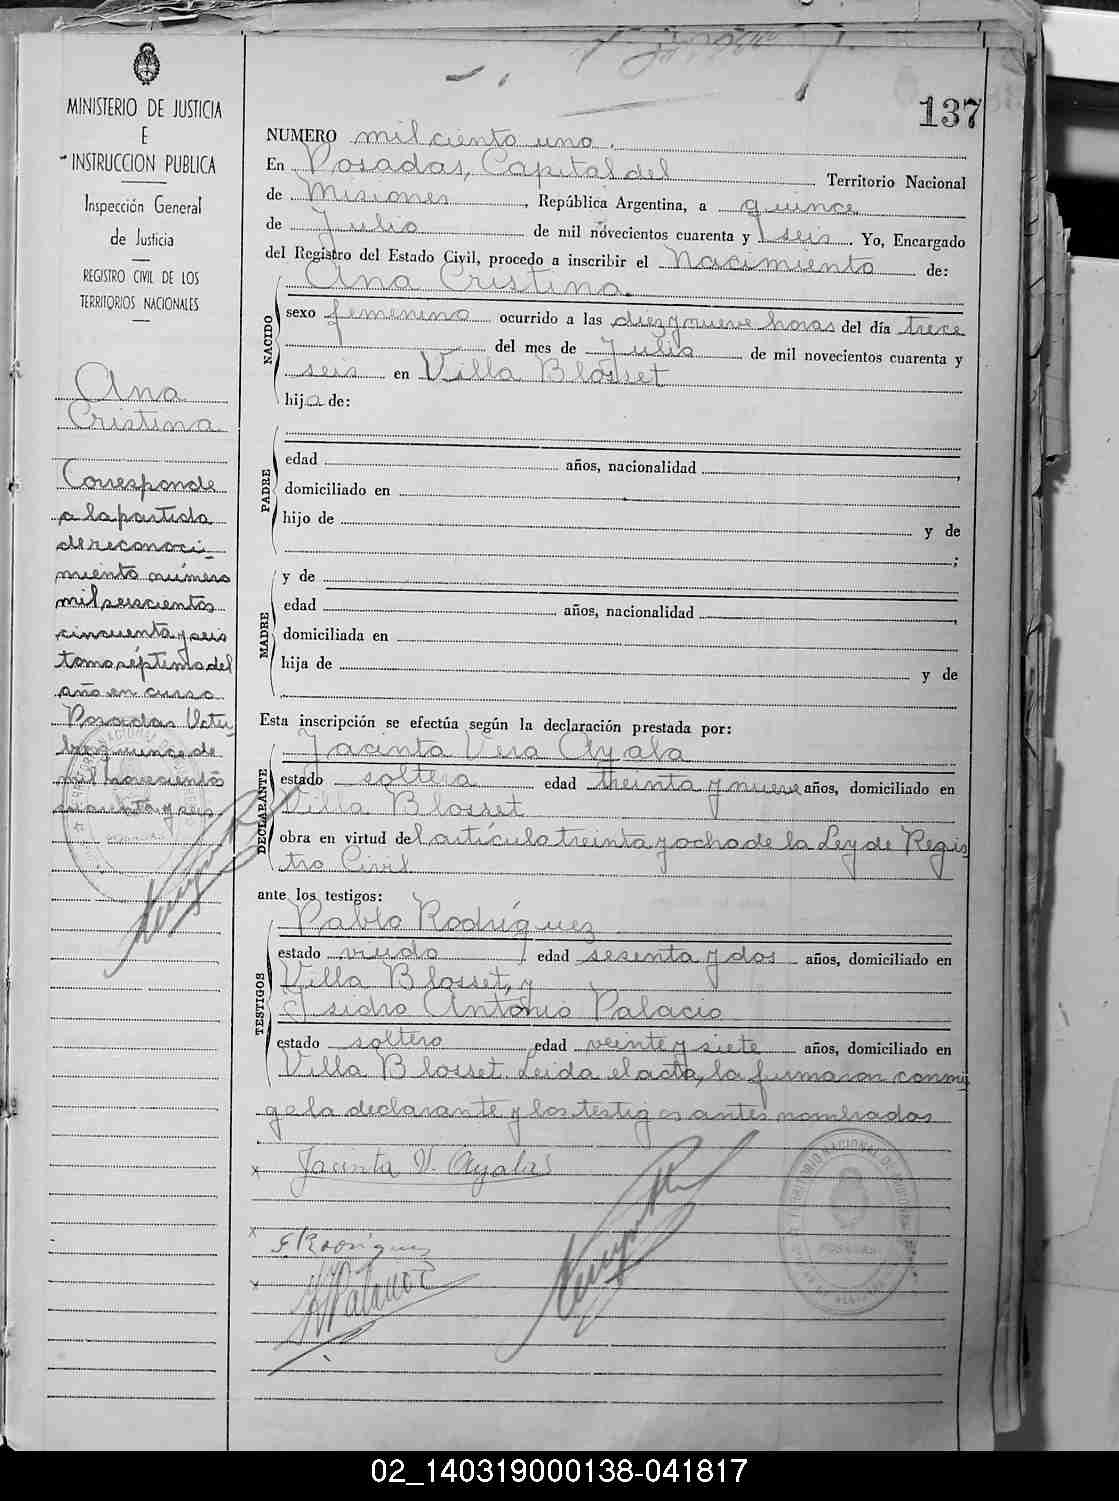 137
MINISTERIO DE JUSTICIA
E
INSTRUCCION PUBLICA
Inspección General
de Justicia
REGISTRO CIVIL DE LOS
TERRITORIOS NACIONALES
Ana
Cristina
Corresponde
a la partida
de reconoci-
miento número
mil seiscientos
cincuenta y seis
tomo séptimo del
año en curso
Posadas Octu-
bre quince de
mil novecientos
cuarenta y seis
NUMERO mil ciento uno.
En Posadas, Capital del Territorio Nacional
de Misiones, República Argentina, a quince
de Julio de mil novecientos cuarenta y seis. Yo, Encargado
del Registro del Estado Civil, procedo a inscribir el Nacimiento de:
NACIDO
Ana Cristina.
sexo femenino ocurrido a las diez y nueve horas del día trece
del mes de Julio de mil novecientos cuarenta y
seis en Villa Blosset
hija de:
PADRE
edad años, nacionalidad ,
domiciliado en
hijo de y de
;
MADRE
y de
edad años, nacionalidad ,
domiciliada en
hija de y de
Esta inscripción se efectúa según la declaración prestada por:
DECLARANTE
Jacinta Vera Ayala
estado soltera edad treinta y nueve años, domiciliado en
Villa Blosset
obra en virtud del artículo treinta y ocho de la Ley de Regis
tro Civil.
ante los testigos:
TESTIGOS
Pablo Rodríguez
estado viudo, edad sesenta y dos años, domiciliado en
Villa Blosset, y
Isidro Antonio Palacio
estado soltero edad veinte y siete años, domiciliado en
Villa Blosset Leida el acta, la firmaron conmi
go la declarante y los testigos antes nombrados
x Jacinta V. Ayala
x Rodríguez
x
POSADAS
02_140319000138-041817